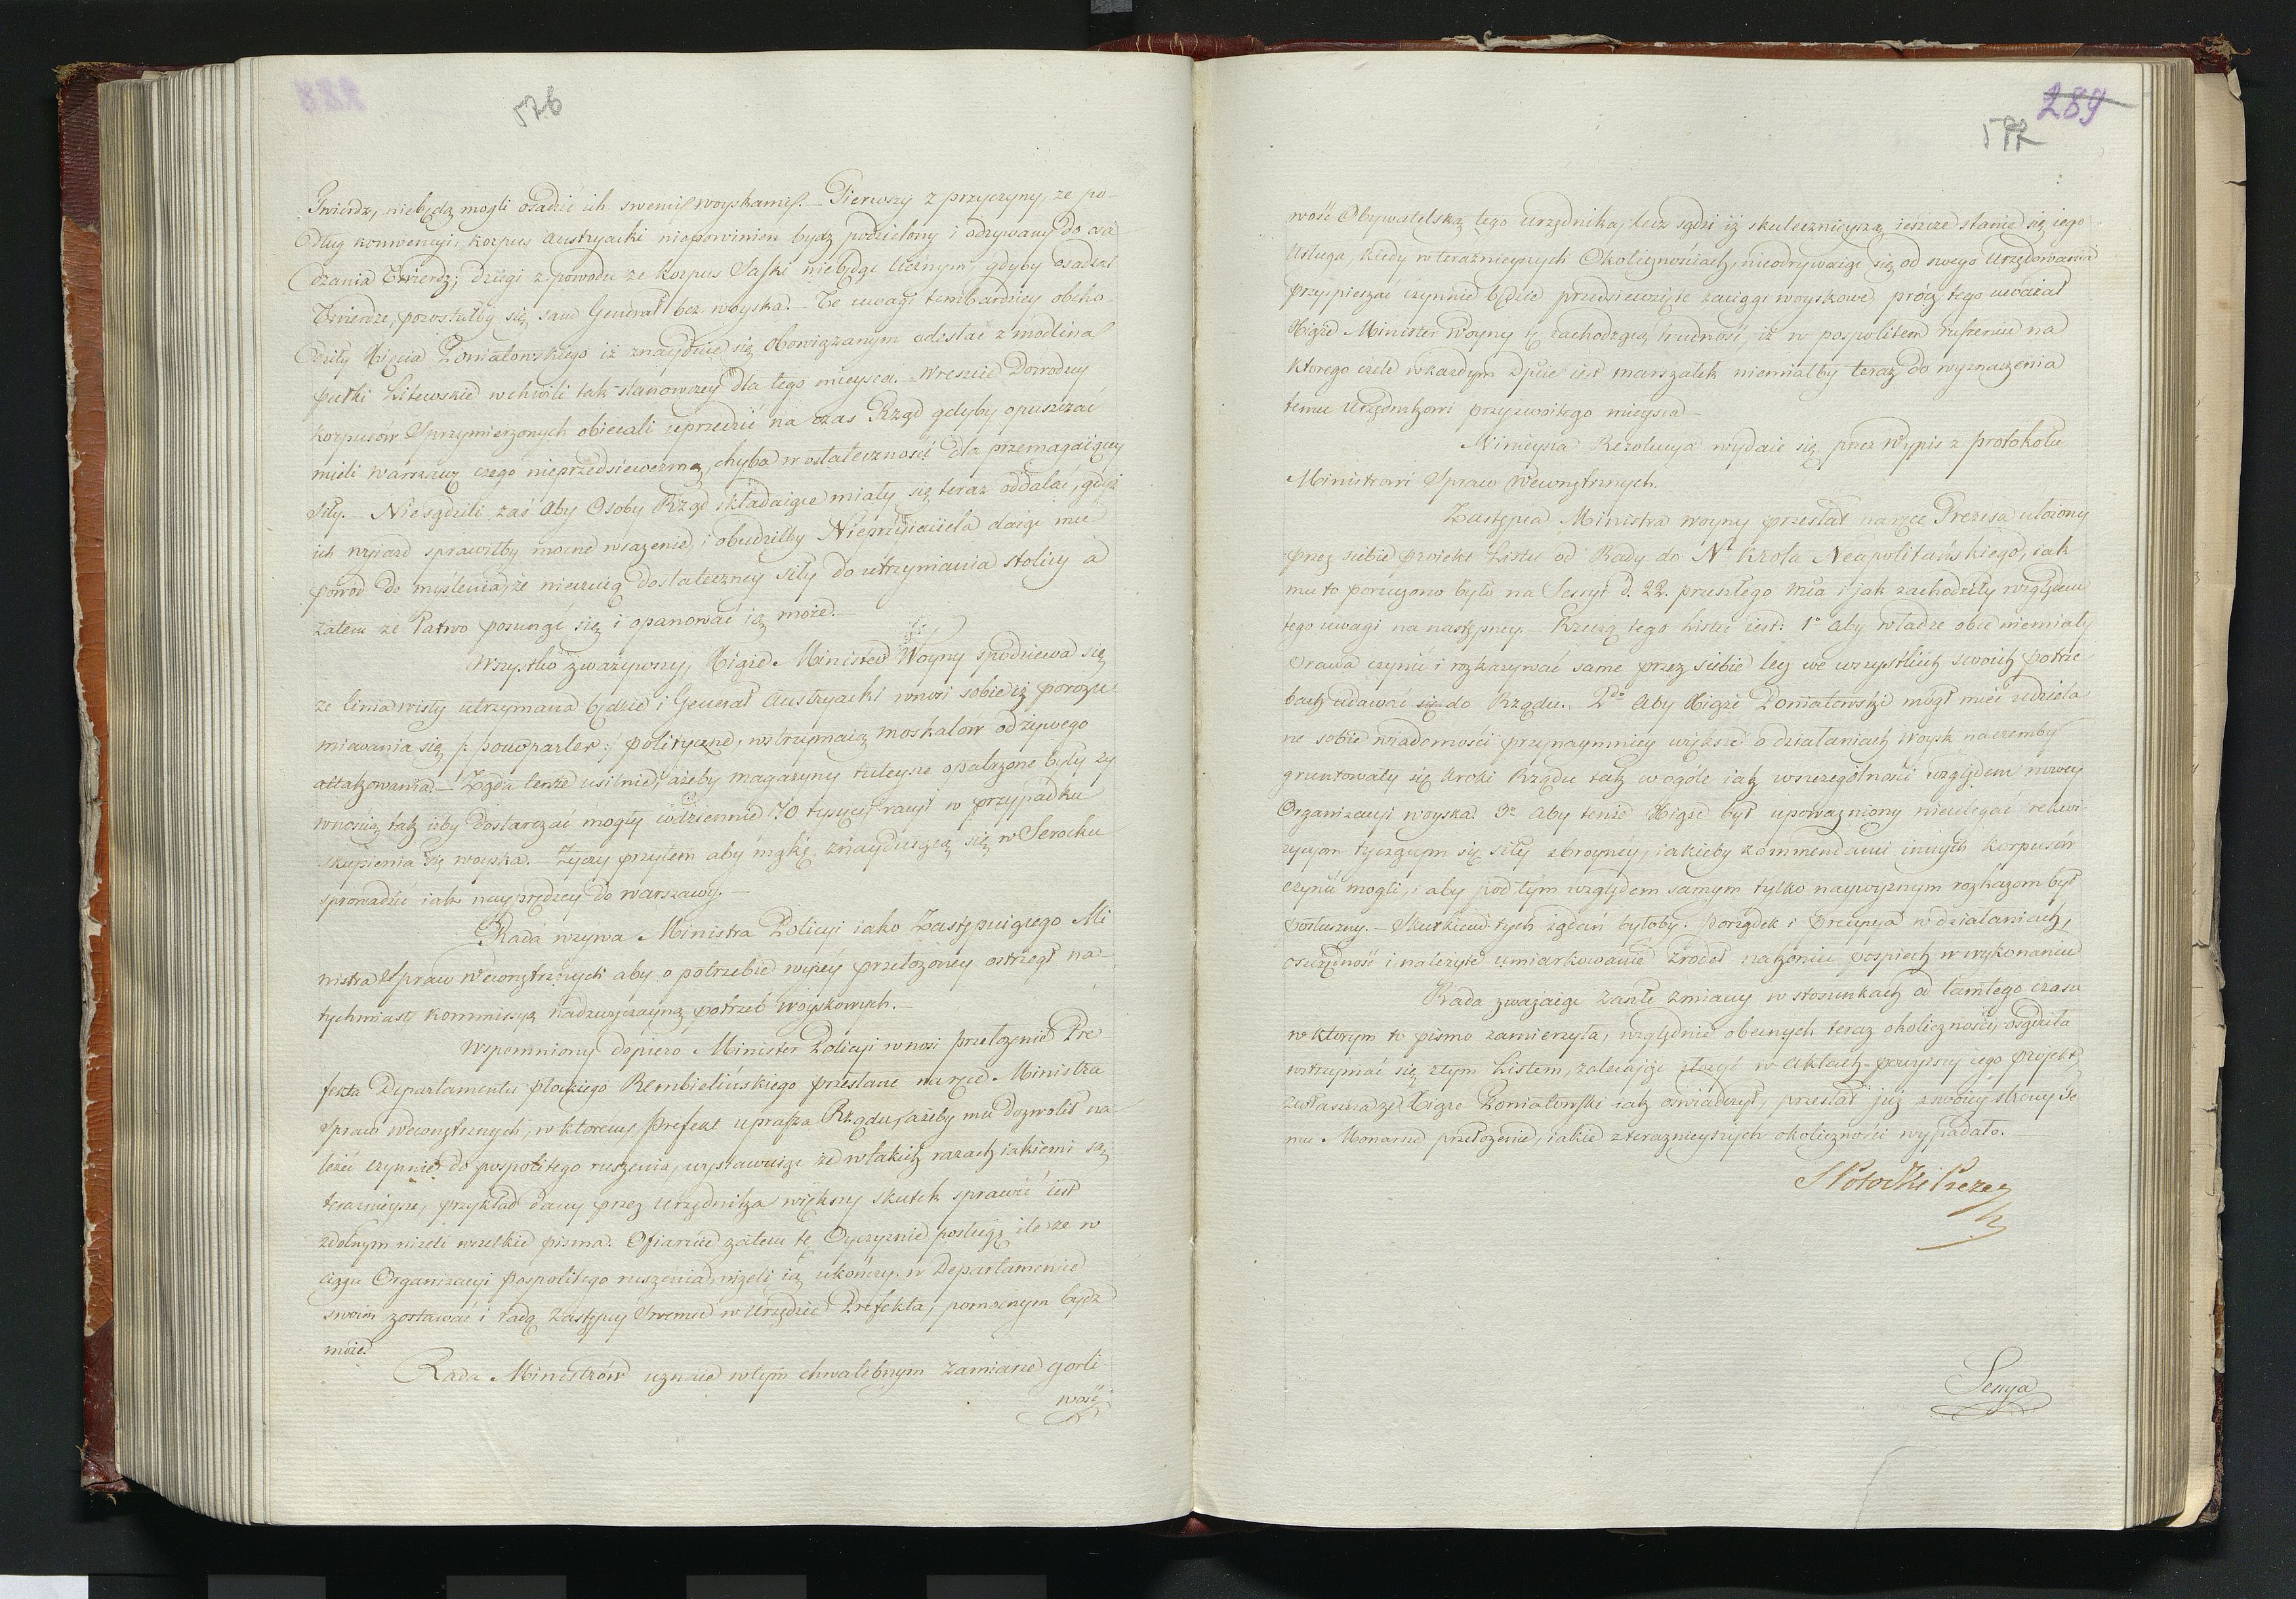 576
Twierdz, niebędą mogli osadzić ich swemi woyskami. — Pierwszy z przyczyny, że po-
dług konwencyi, korpus Austryacki niepowinien bydz podzielony i odzywany do osa
dzania Twierdz; drugi z powodu że korpus Saski niebędąc licznym, gdyby osadzał
Twierdze, pozostałby się sam Generał bez woyska. — Te uwagi tembardziey obcho-
dziły Xięcia Poniatowskiego iż znayduie się obowiązanym odesłać z Modlina
pułki Litewskie w chwili tak stanowczey dla tego mieysca. — Wreszcie Dowodzcy
korpusów Sprzymierzonych obiecali uprzedzić na czas Rząd gdyby opuszczać
mieli Warszawę czego nieprzedsiewezmą, chyba w ostateczności dla przemagaiącey
siły. — Niesądzili zaś aby Osoby Rząd składaiące miały się teraz oddalać, gdyż
ich wyiazd sprawiłby mocne wrażenie, i obudziłby Nieprzyiaciela daiąc mu
powod do myślenia, że nieczuią dostateczney siły do utrzymania stolicy a
zatem że łatwo posunąć się i opanować ią może. —
Wszystko zważywszy, Xiąże Minister Woyny spodziewa się
że linia Wisły utrzymana będzie i Generał Austryacki wnosi sobie iż porozu
miewania się /: pourparler :/ polityczne, wstrzymaią Moskalow od żywego
attakowania. — Żąda tenże usilnie, ażeby magazyny tuteysze opatrzone były ży
wnością tak iżby dostarczać mogły codziennie 70 tysięcy racyi w przypadku
skupienia się woyska. — Życzy przytem aby mąkę znayduiącą się w Serocku
sprowadzić iak nayprędzey do Warszawy. —
Rada wzywa Ministra Policyi iako Zastępuiącego Mi
nistra Spraw Wewnętrznych aby o potrzebie wyżey przełożoney ostrzegł na-
tychmiast kommissyą nadzwyczayną potrzeb woyskowych. —
Wspomniony dopiero Minister Policyi wnosi przełożenie Pre-
fekta Departamentu płockiego Rembielińskiego przesłane na ręce Ministra
Spraw Wewnętrznych, w ktorem Prefekt uprasza Rządu, ażeby mu dozwolił na
leżeć czynnie do pospolitego ruszenia, wystawuiąc że w takich razach iakiemi są
teraznieysze, przykład dany przez Urzędnika większy skutek sprawić iest
zdolnym niżeli wszelkie pisma. Ofiaruie zatem tę Oyczyznie posługę ile że w
ciągu Organizacyi pospolitego ruszenia, niżeli ią ukończy, w Departamencie
swoim zostawać i radą zastępcy Swemu w Urzędzie Prefekta, pomocnym bydz
może.
Rada Ministrów uznaie w tym chwalebnym zamiarze gorli
wość
289
577
wość Obywatelską tego urzędnika, lecz sądzi iż skutecznieyszą ieszcze stanie się iego
Usługa, kiedy w teraznieyszych Okolicznościach, nieodrywaiąc się od swego Urzędowania
przyspieszać czynnie będzie przedsiewzięte zaciągi woyskowe prócz tego uważał
Xiąże Minister Woyny tę zachodzącą trudność, iż w pospolitem ruszeniu na
ktorego czele w każdym Dpcie iest marszałek niemiałby teraz do wyznaczenia
temu Urzędnikowi przyzwoitego mieysca —
Ninieysza Rezolucya wydaie się przez Wypis z protokołu
Ministrowi Spraw Wewnętrznych.
Zastępca Ministra Woyny przesłał na ręce Prezesa ułożony
przez siebie proiekt Listu od Rady do N° Krola Neapolitańskiego, iak
mu to poruczono było na Sessyi d. 22. przeszłego mca i jak zachodziły względem
tego uwagi na następney. — Rzeczą tego Listu iest: 1° Aby władze obce niemiały
prawa czynić i rozkazywać same przez siebie lecz we wszystkich swoich potrze
bach udawać się do Rządu. 2do Aby Xiąże Poniatowski mógł mieć udziela
ne sobie wiadomości przynaymniey większe o działaniach Woysk na czemby
gruntowały się kroki Rządu tak w ogóle iak w szczególności względem nowey
Organizacyi woyska. 3° Aby tenże Xiąże był upoważniony nieulegać rekwi
zycyom tyczącym się siły zbroyney, iakieby kommendanci innych korpusów
czynić mogli, i aby pod tym względem samym tylko naywyższym rozkazom był
posłuszny. — Skutkiem tych żądań byłoby: porządek i precyzya w działaniach,
oszczędność i należyte umiarkowanie źrodeł nakoniec pospiech w wykonaniu
Rada zważaiąc zaszłe zmiany w stosunkach od tamtego czasu
w ktorym to pismo zamierzyła, względnie obecnych teraz okoliczności, osądziła
wstrzymać się z tym Listem, zalecaiąc złożyć w Aktach powyższy iego projekt,
zwłaszcza że Xiąże Poniatowski iak oswiadczył, przesłał już z swoiey strony te
mu Monarsze przełożenie, iakie z teraznieyszych okoliczności wypadało.
S Potocki Prezes
Sessya